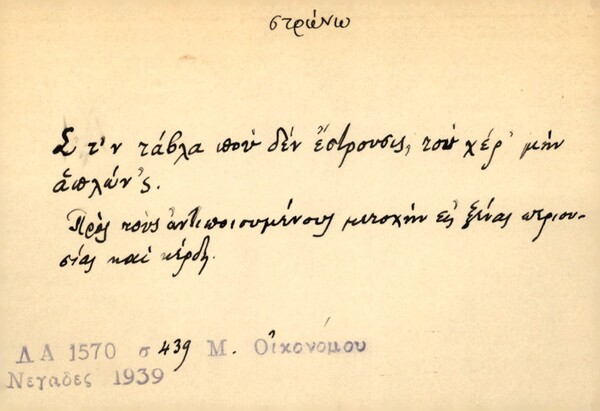 στρώνω
Σ τ'ν τάβλα ποὺ δέν ἔστρουσις, τοὺ χέρ' μὴν
ἁπλών'ς.
Πρὸς τοὺς ἀντιποιουμένους μετοχὴν εἰς ξένας περιου-
σίας καὶ κέρδη.
Δ Α 1570 σ 439 Μ. Οἰκονόμου
Νεγαδες 1939